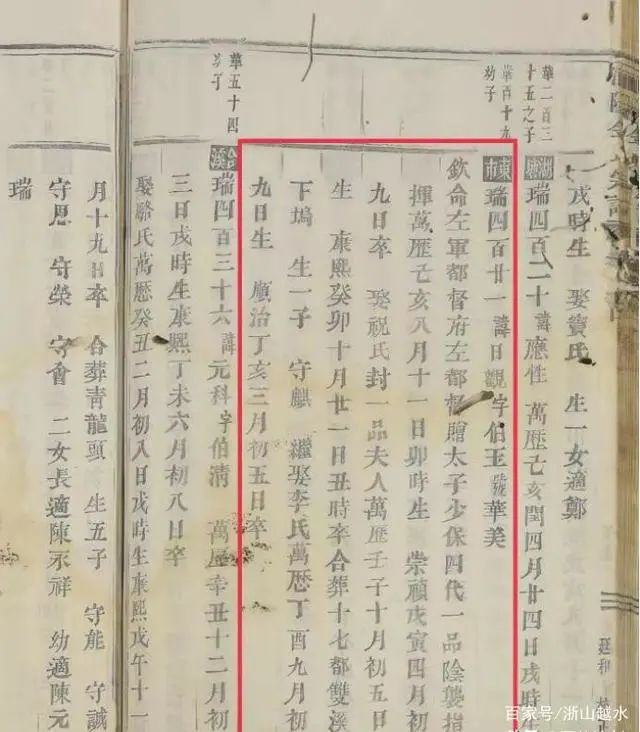 廷和
華二百三
十五之子
華百十九
幼子
華五十四
戌時生 娶竇氏 生一女適鄭
瑞四百二十諱應性 萬歷己亥閏四月廿四日戌時生
東市 瑞四百廿一諱日觀字伯玉號華美
欽命左軍都督府左都督贈太子少保四代一品陰襲指
揮萬歷己亥八月十一日卯時生 崇禎戊寅四月初
九日卒 娶祝氏封一品夫人萬歷壬子十月初五日
生 康熙癸卯十月廿一日丑時卒合葬十七都雙溪
下塢 生一子 守麒 繼娶李氏萬歷丁酉九月初
九日生 順治丁亥三月初五日卒
瑞四百三十六諱元科字伯清 萬歷辛丑十二月初
三日戌時生康熙丁未六月初八日卒
娶駱氏萬歷癸丑二月初八日戌時生康熙戊午十一
月十九日卒 合葬青龍頭 生五子 守能 守誠
守恩 守榮 守會 二女長適陳永祥 幼適陳元
瑞
百家号/浙山越水